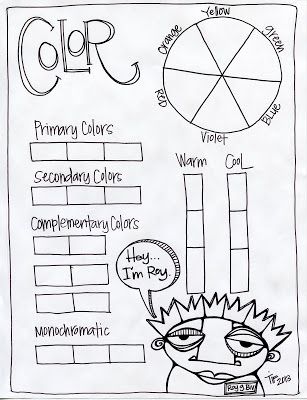 COLOR
Yellow
Orange
Green
Red
Blue
Violet
Primary Colors
Secondary Colors
Complementary Colors
Monochromatic
Warm
Cool
Hey...
I'm Roy.
Roy G Biv
2013